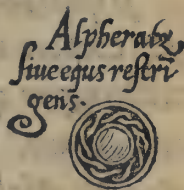 Alpheratz,
siue equs restrī
gens.